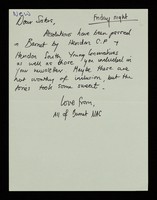 News
Dear Sisters,
Friday night
Resolutions have been passed
in Barnet by Hendon C.P. &
Hendon South Young Conservatives
as well as those you included in
your newsletter. Maybe these are
not worthy of inclusion, but the
took some sweat.
Love from,
All of Barnet NAC